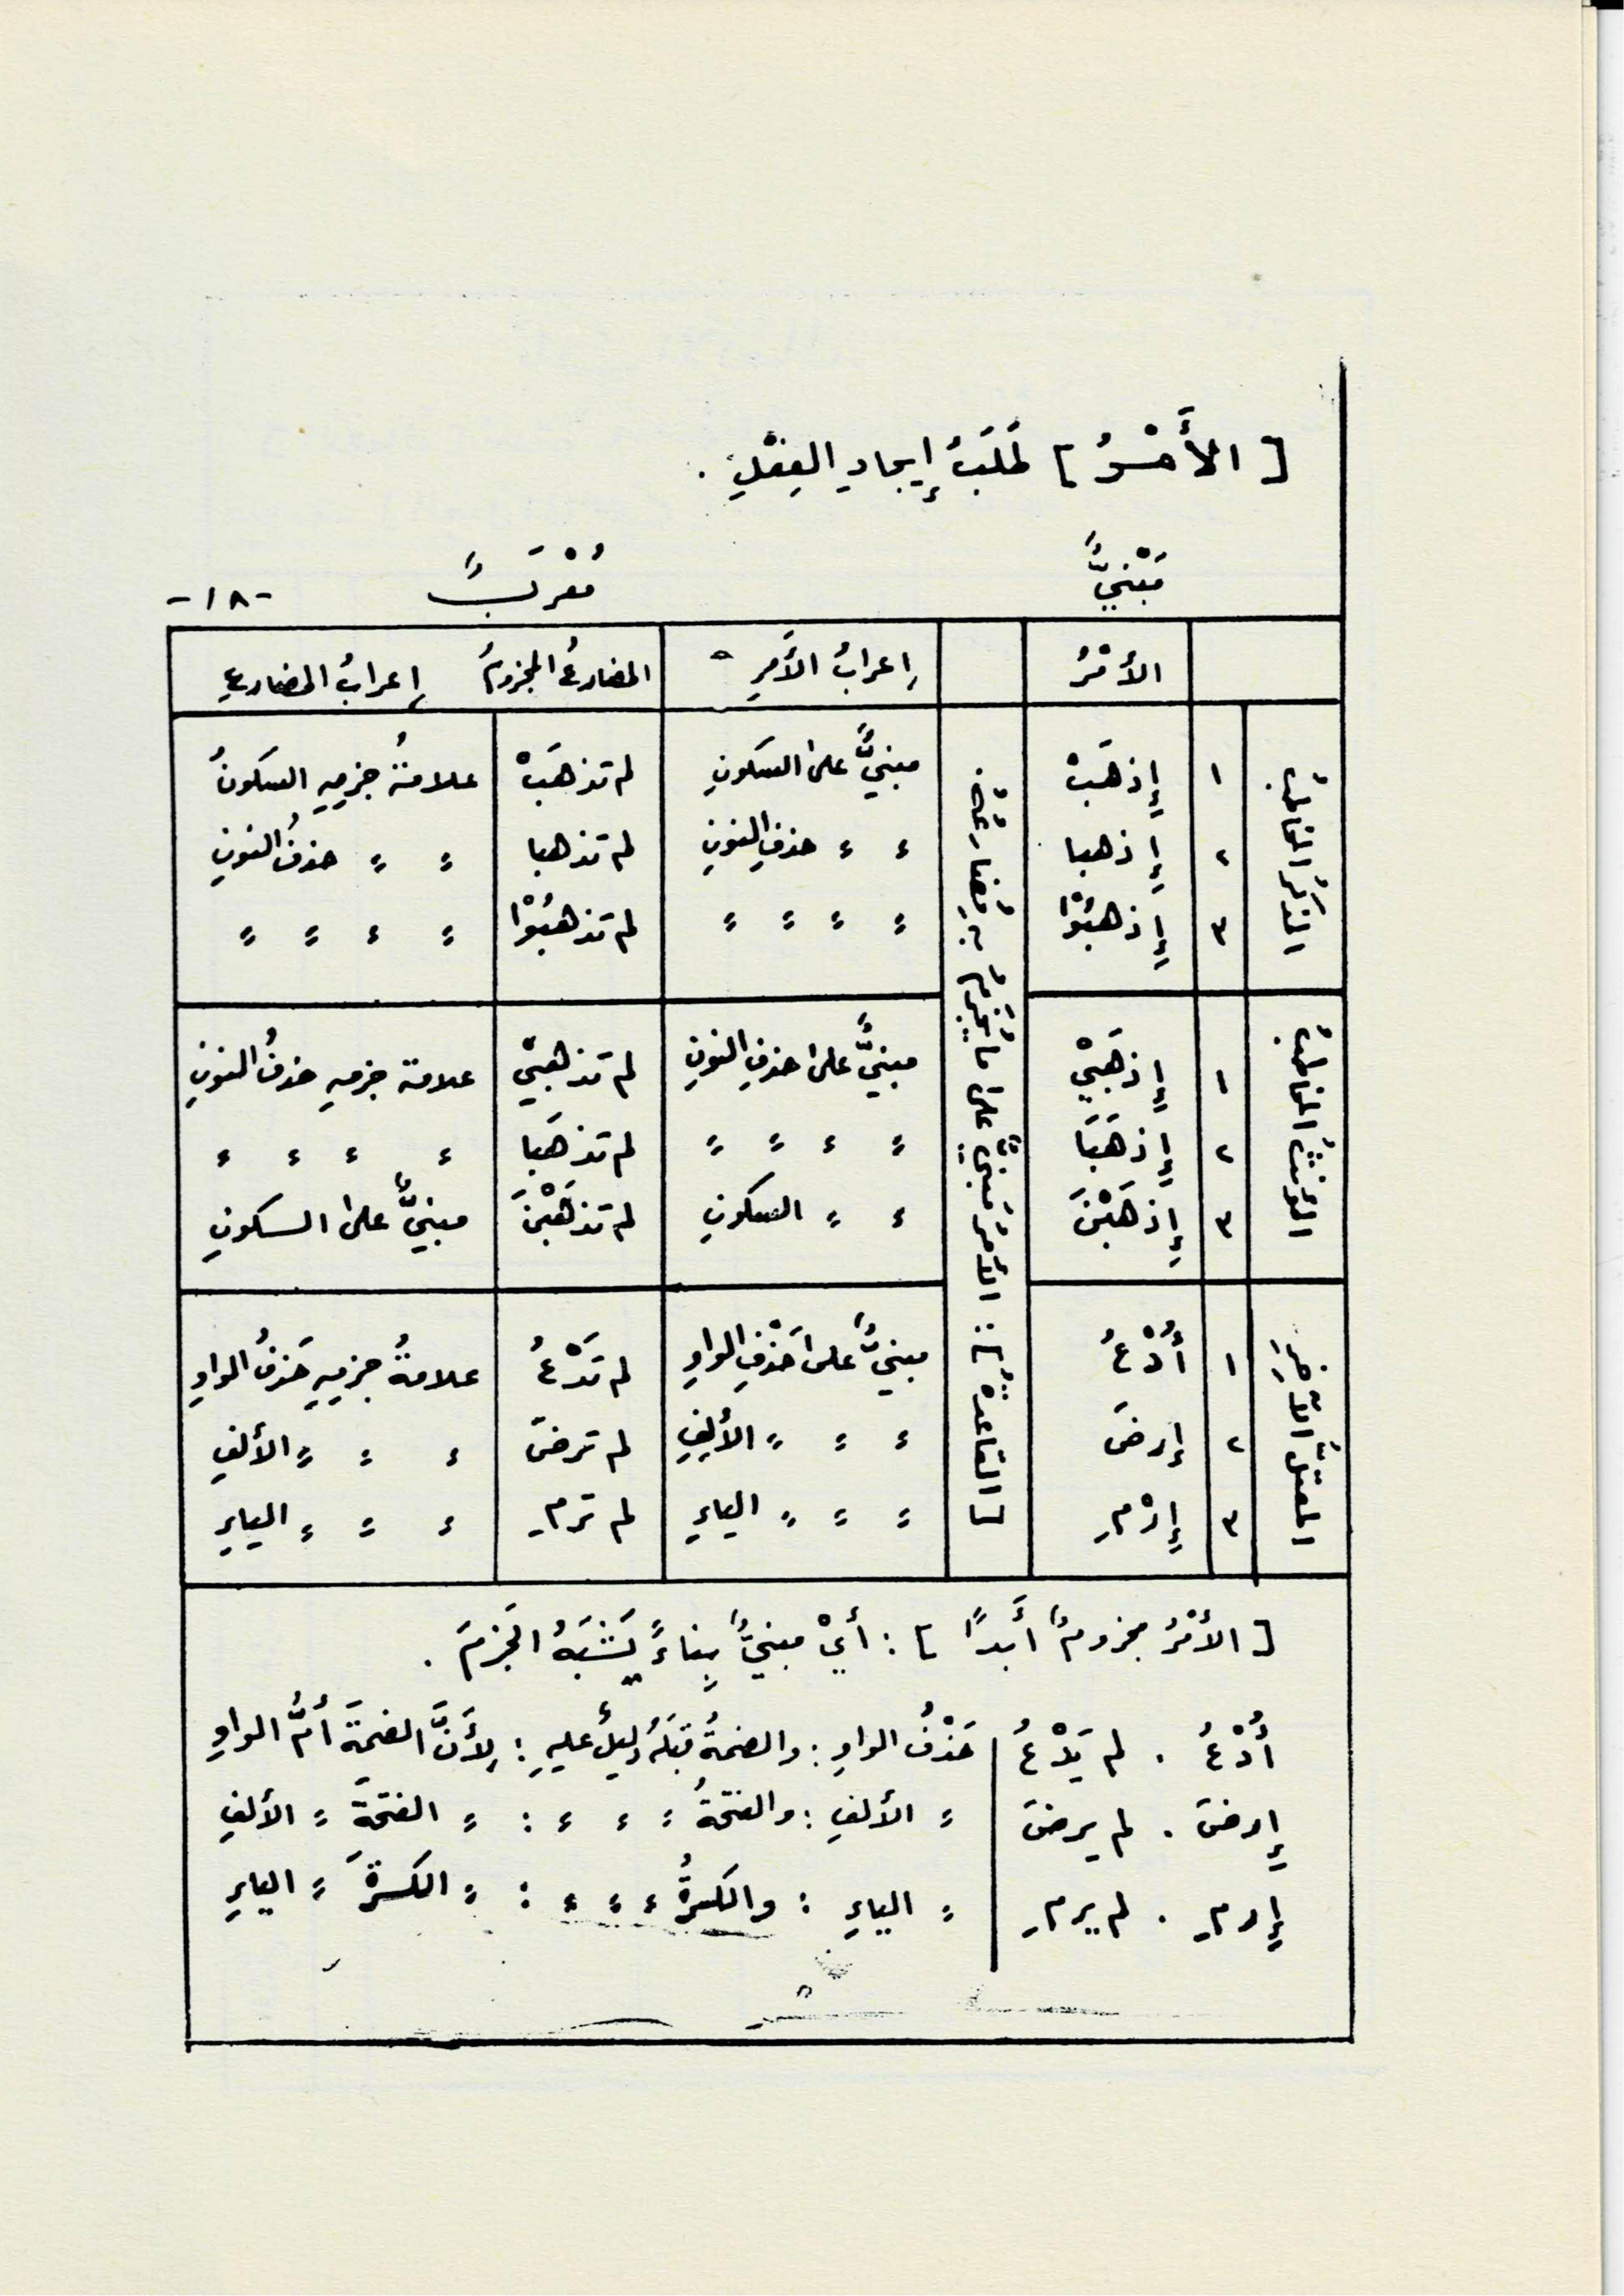 [ الأَمْـرُ ] طَلَبُ إيجادِ الفِعْلِ .
مَبْنيٌّ مُعْرَبٌ -١٨-
الأمْرُ إعرابُ الأَمرِ المضارعُ المجزومُ إعرابُ المضارعِ
المذكرُ المخاطبُ
[ القاعدةُ ] : الأمرُ مَبنيٌّ على ما يُجْزَمُ بِهِ مُضارِعُهُ
١ إِذهَبْ مبنيٌّ على السكونِ لم تذهَبْ علامةُ جزمِهِ السكونُ
٢ إِذهبا ء ء حذفِ النونِ لم تذهبا = = حذفُ النونِ
٣ إِذهبُوْا = = = = لم تذهبُوْا = = ء = =
المؤنثُ المخاطبةُ
١ إِذهَبيْ مبنيٌّ على حذفِ النونِ لم تذهبيْ علامة جزمهِ حذفُ النونِ
٢ إِذهَبَا = ء = = لم تذهَبَا ء ء ء ء
٣ إِذهَبْنَ ء = السكونِ لم تذهَبْنَ مبنيٌّ على السكونِ
المعتلُّ الآخِرِ
١ أُدْعُ مبنيٌّ على حَذْفِ الواوِ لم تَدْعُ علامةُ جزمِهِ حَذفُ الواوِ
٢ إرضَ ء = = الألِفِ لم ترضَ ء = = الألفِ
٣ إِرْمِ = = = الياءِ لم ترمِ ء = = الياءِ
[ الأمْرُ مجزومٌ أَبداً ] : أيْ مبنيٌّ بِناءً يَشْبَهُ الجَزمَ .
أُدْعُ . لم يَدْعُ حَذْفُ الواوِ : والضمةُ قبلَهُ دليلٌ عليهِ : لِأَنَّ الضمةَ أُمُّ الواوِ
إِرضَ . لم يرضَ = الألفِ : والفتحةُ = ء ء : = الفتحةَ = الألفِ
إِرمِ . لم يرمِ = الياءِ : والكسرةُ ء = ء : = الكسرةَ = الياءِ